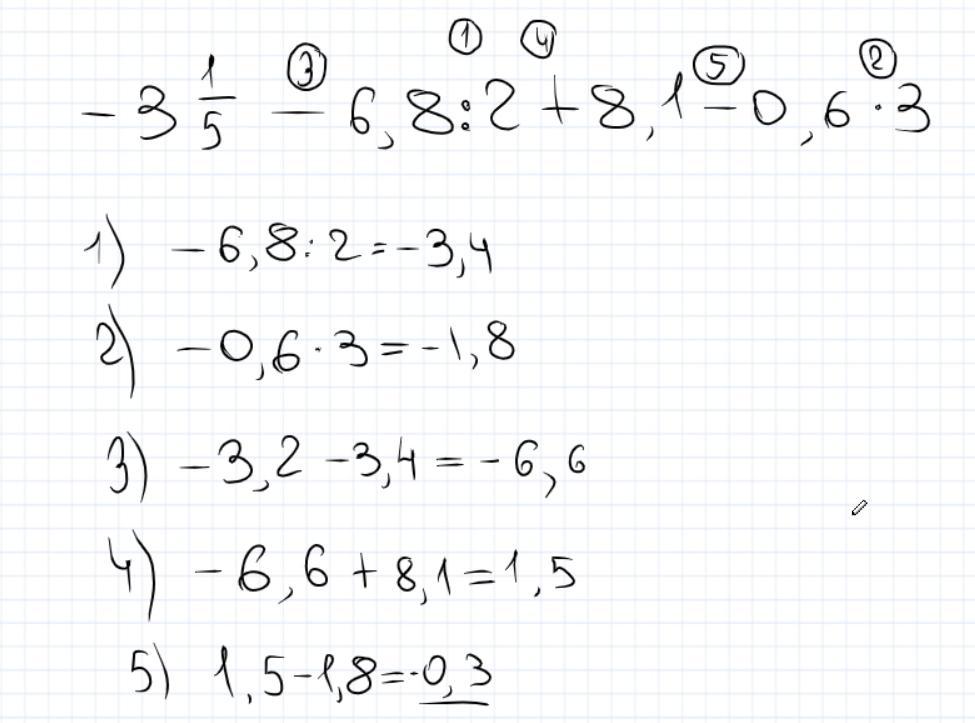 ③ ① ④ ⑤ ②
-3 1/5 - 6,8:2 + 8,1 - 0,6·3
1) -6,8:2=-3,4
2) -0,6·3=-1,8
3) -3,2-3,4=-6,6
4) -6,6+8,1=1,5
5) 1,5-1,8=-0,3